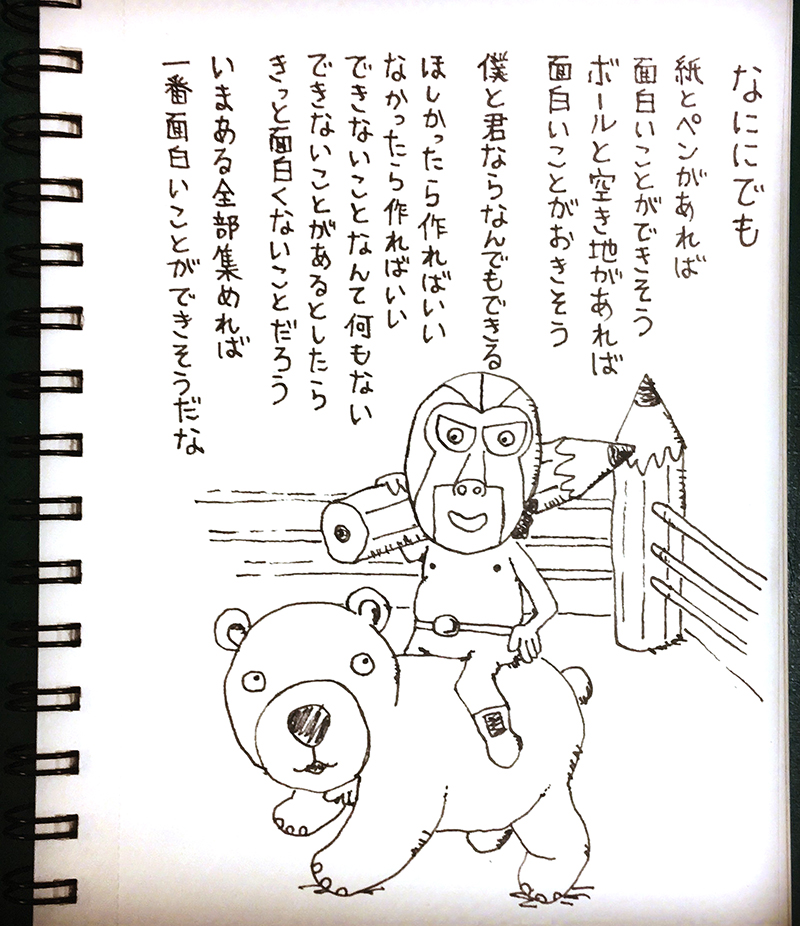 なににでも
紙とペンがあれば
面白いことができそう
ボールと空き地があれば
面白いことがおきそう
僕と君ならなんでもできる
ほしかったら作ればいい
なかったら作ればいい
できないことなんて何もない
できないことがあるとしたら
きっと面白くないことだろう
いまある全部集めれば
一番面白いことができそうだな